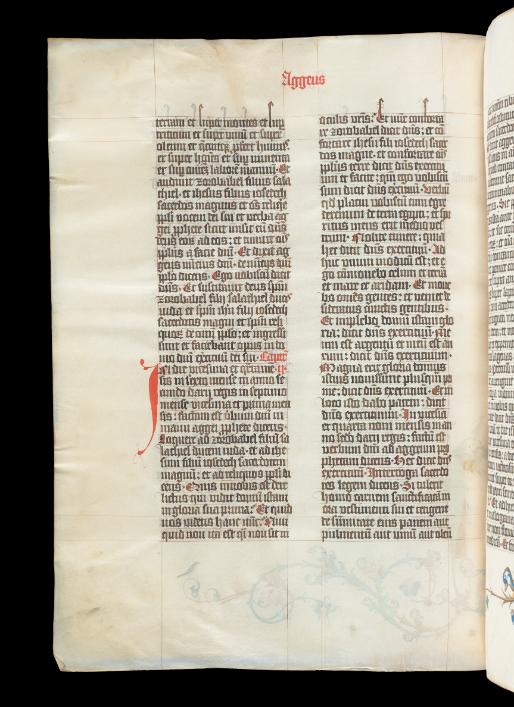 Aggeus
terram et super montes et sup
triticum et super vinū et super
oleum et quecūqȝ ꝓfert humus
et super hoīes et sup iumenta
et sup omnē laborē manuū · Et
audiuit zorobabel filius sala
thiel · et ihesus filius iosedech
sacerdos magnus et oēs reliqe
ppli vocem dei sui et verba ag
gei ꝓphete sicut misit eū dn̄s
deus eoꝝ ad eos ; et timuit oīs
ppl̄us a facie dn̄i · Et dixit ag
geus nūcius dn̄i · de nūcijs dn̄i
pplo dicens · Ego vobiscū dicit
dn̄s · Et suscitauit deus spm̄
zorobabel filij salathyel ducis
iuda · et spm̄ ihū filij iosedech
sacerdotis magni et spm̄ reli
quoꝝ de om̄i pplo ; et ingressi
sunt et faciebant opus in do
mo dn̄i exercituū dei sui · Capitl̄
In die vicesima et quarta · ij
sexto mense in anno se
cundo darij regis in septimo
mense vicesima et prima men
sis ; factum est v̄bum dn̄i in
manu aggei ꝓphete dicens ·
Loquere ad zorobabel filiū sa
lathiel ducem iuda · et ad ihe
sum filiū iosedech sacerdotem
magnū ; et ad reliquos ppli di
cens · Quis in vobis est dere
lictus qui vidit domū istam
in gloria sua prima · Et quid
vos videtis hanc nūc · Nūq͛d
quid non ita est qͣsi non sit in
oculis vr̄is · Et nūc confortaͬ
re zorobabel dicit dn̄s ; et cō
fortare ihesu fili iosedech sacer
dos magne · et confortare oīs
pplūs terre dicit dn̄s exercitu
um et facite ; qm̄ ego vobiscū
sum dicit dn̄s exercituū · Verbū
qd̄ placui vobiscū cum egre
deremini de terra egipti ; et spi
ritus meus erit ī medio ves
trum · Nolite timere ; quia
hec dicit dn̄s exercituū · Ad
huc vnum modicū est ; et e
go cōmouebo celum et terrā
et mare et aridam · Et moue
bo om̄es gentes ; et veniet de
sideratus cūctis gentibus ·
Et implebo domū istam glo
ria ; dicit dn̄s exercituū · Me
um est argentū et meū est au
rum ; dicit dn̄s exercituum ·
Magna erit gloria domus
istius nouissime plusqͣm pri
me ; dicit dn̄s exercituū · Et in
loco isto dabo pacem · dicit
dn̄s exercituum · In vicesīa
et quarta noni mensis in an
no scd̄o darij regis ; factū est
verbum dn̄i ad aggeum ꝓ
phetam dicens · Hec dicit dn̄s
exercituū · Interroga sacerdo
tes legem dicens · Si tulerit
homo carnem sanctificatā in
ora vestimenti sui et tetigerit
de sūmitate eius panem aut
pulmentū aut vinū aut oleū